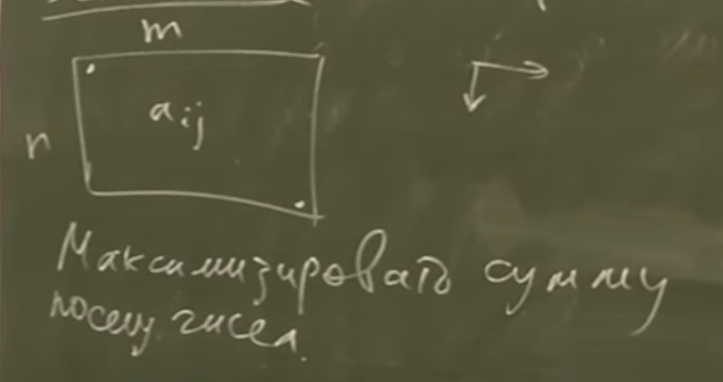 m
n
a_ij
Максимизировать сумму
посещ. чисел.